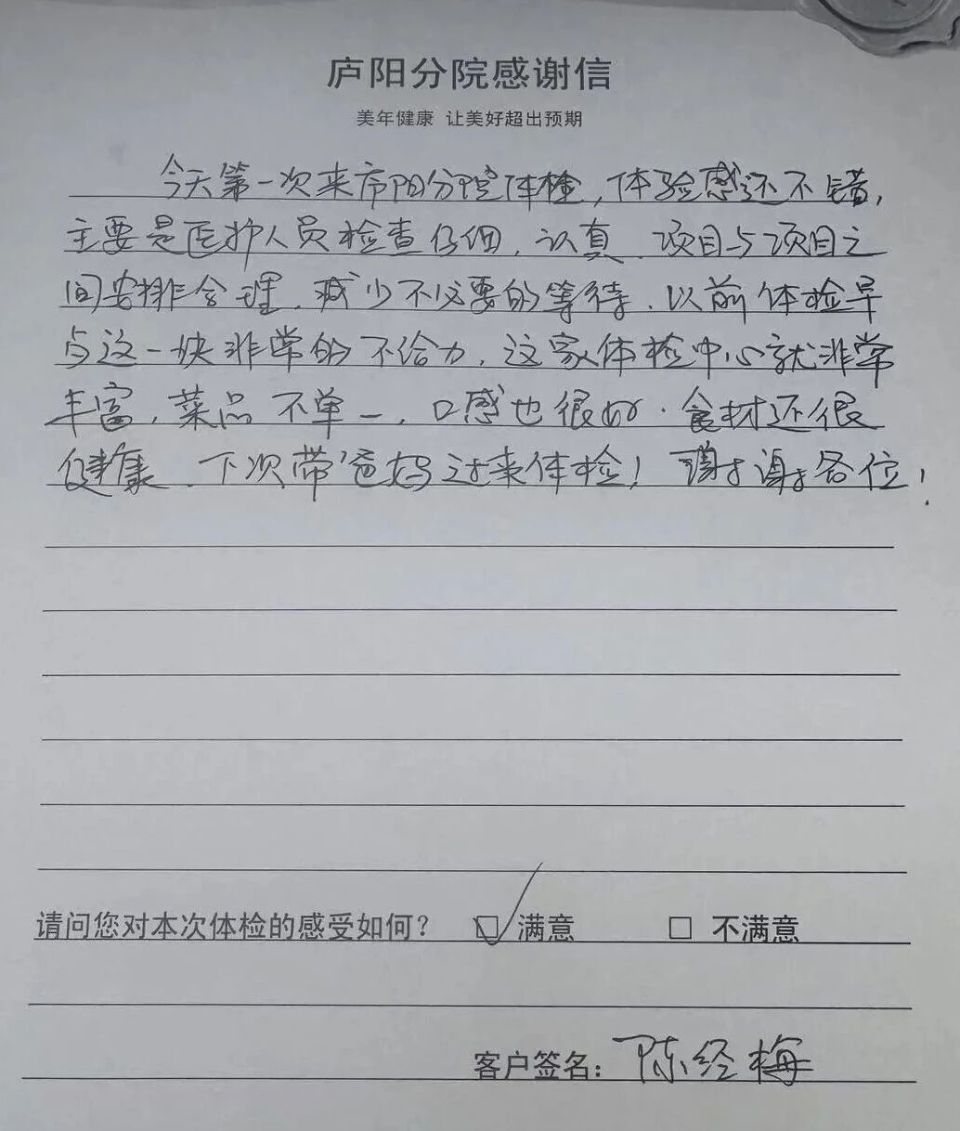 庐阳分院感谢信
美年健康 让美好超出预期
今天第一次来庐阳分院体检，体验感还不错，
主要是医护人员检查仔细、认真、项目与项目之
间安排合理，减少不必要的等待、以前体检早
与这一块非常的不给力，这家体检中心就非常
丰富，菜品不单一，口感也很好，食材还很
健康、下次带爸妈过来体检！谢谢各位！
请问您对本次体检的感受如何？ ☑ 满意 □ 不满意
客户签名：陈经梅